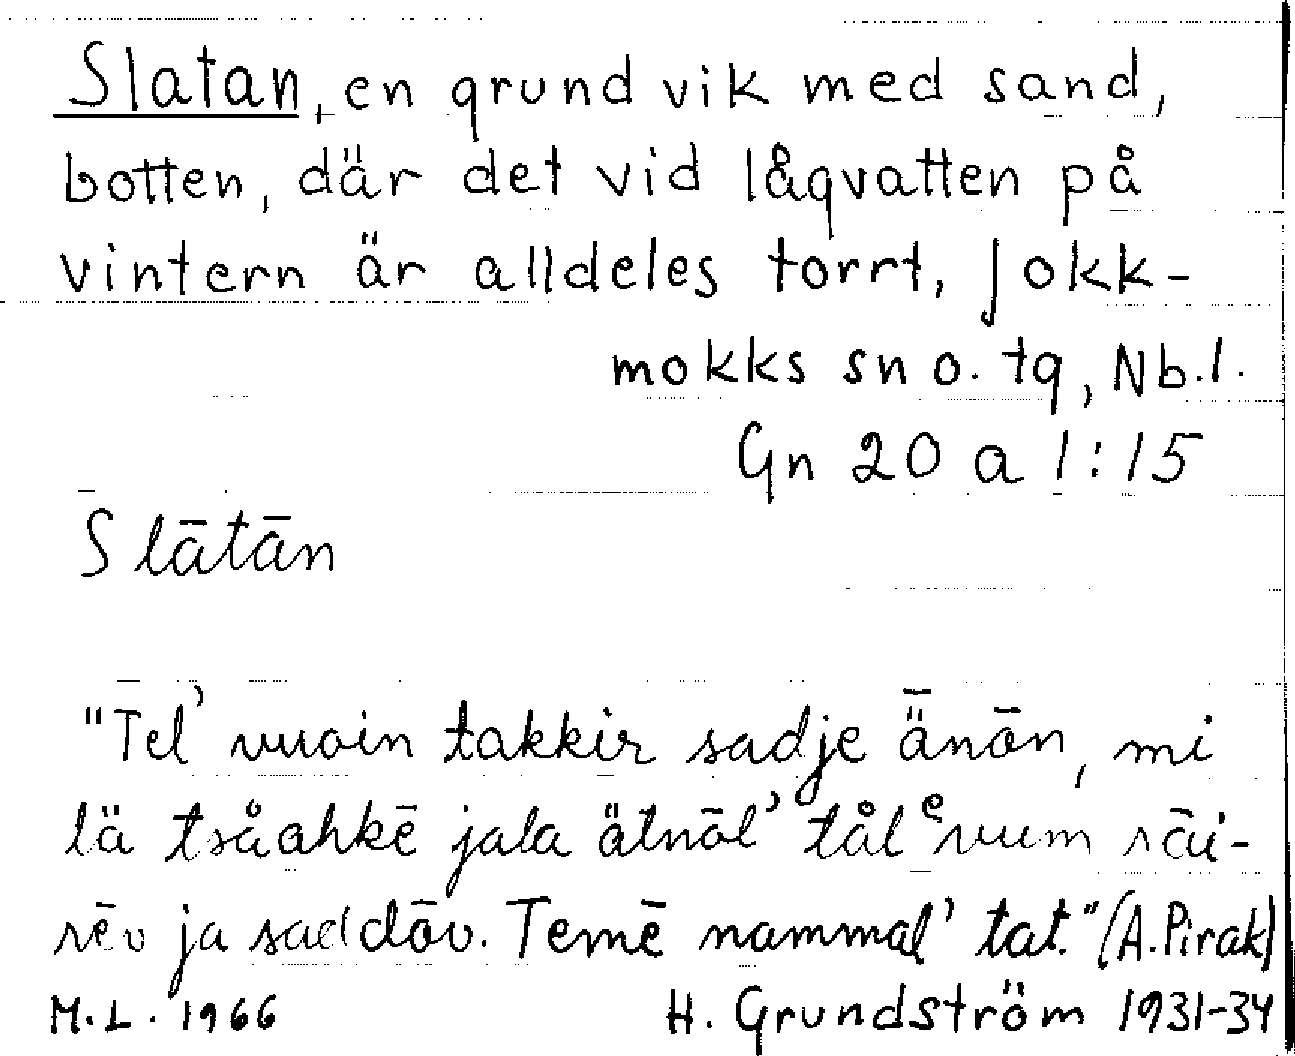 Slatan, en grund vik med sand,
botten, där det vid lågvatten på
vintern är alldeles torrt, Jokk-
mokks sn o. tg, Nb.l.
Gn 20 a 1:15
Slātān
"Tel' vuoin takkir sadje ǟnān, mi
lä tsåahkē jala ätnāl' tålᵉvuum
rēv ja saddāv. Temē nammal' tat." (A. Pirak)
M.L. 1966 H. Grundström 1931-34